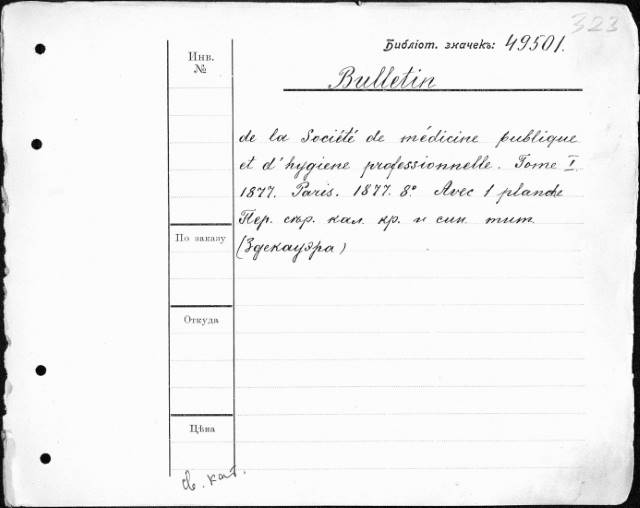 323
Библіот. значекъ: 49501.
Инв.
№
Bulletin
de la Société de médicine publique
et d'hygiene professionnelle. Tome I.
1877. Paris. 1877. 8° Avec 1 planche
Пер. сѣр. кал. кр. и син. тит.
(Здекауэра)
По заказу
Откуда
Цѣна
св. кат.